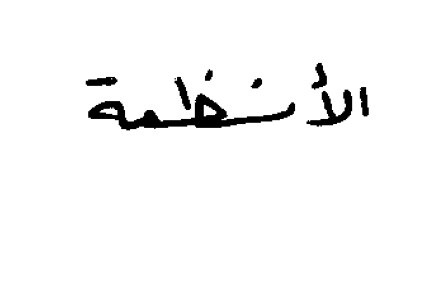 الأنظمة